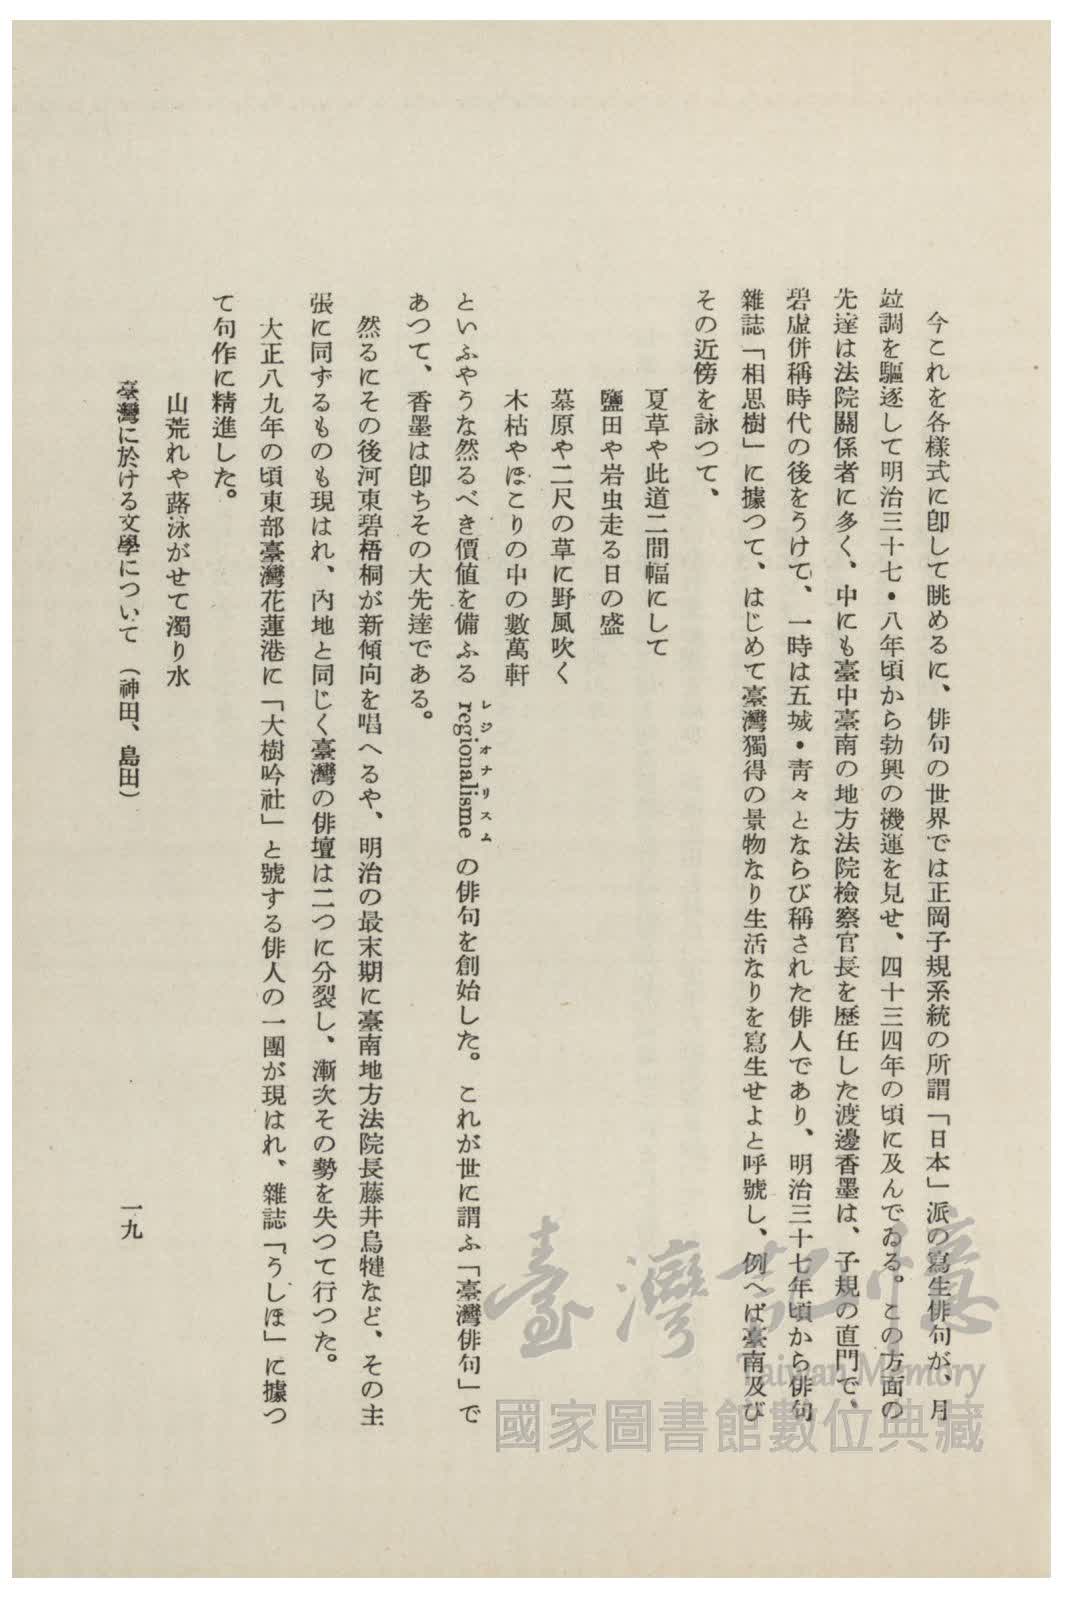 今これを各樣式に卽して眺めるに、俳句の世界では正岡子規系統の所謂「日本」派の寫生俳句が、月
竝調を驅逐して明治三十七・八年頃から勃興の機運を見せ、四十三四年の頃に及んでゐる。この方面の
先達は法院關係者に多く、中にも臺中臺南の地方法院檢察官長を歷任した渡邊香墨は、子規の直門で、
碧虛併稱時代の後をうけて、一時は五城・靑々とならび稱された俳人であり、明治三十七年頃から俳句
雜誌「相思樹」に據つて、はじめて臺灣獨得の景物なり生活なりを寫生せよと呼號し、例へば臺南及び
その近傍を詠つて、
夏草や此道二間幅にして
鹽田や岩虫走る日の盛
墓原や二尺の草に野風吹く
木枯やほこりの中の數萬軒
といふやうな然るべき價値を備ふる regionalisme の俳句を創始した。これが世に謂ふ「臺灣俳句」で
レジオナリスム
あつて、香墨は卽ちその大先達である。
然るにその後河東碧梧桐が新傾向を唱へるや、明治の最末期に臺南地方法院長藤井烏犍など、その主
張に同ずるものも現はれ、內地と同じく臺灣の俳壇は二つに分裂し、漸次その勢を失つて行つた。
大正八九年の頃東部臺灣花蓮港に「大樹吟社」と號する俳人の一團が現はれ、雜誌「うしほ」に據つ
て句作に精進した。
山荒れや蕗泳がせて濁り水
臺灣に於ける文學について （神田、島田）
一九
臺灣記憶
Taiwan Memory
國家圖書館數位典藏